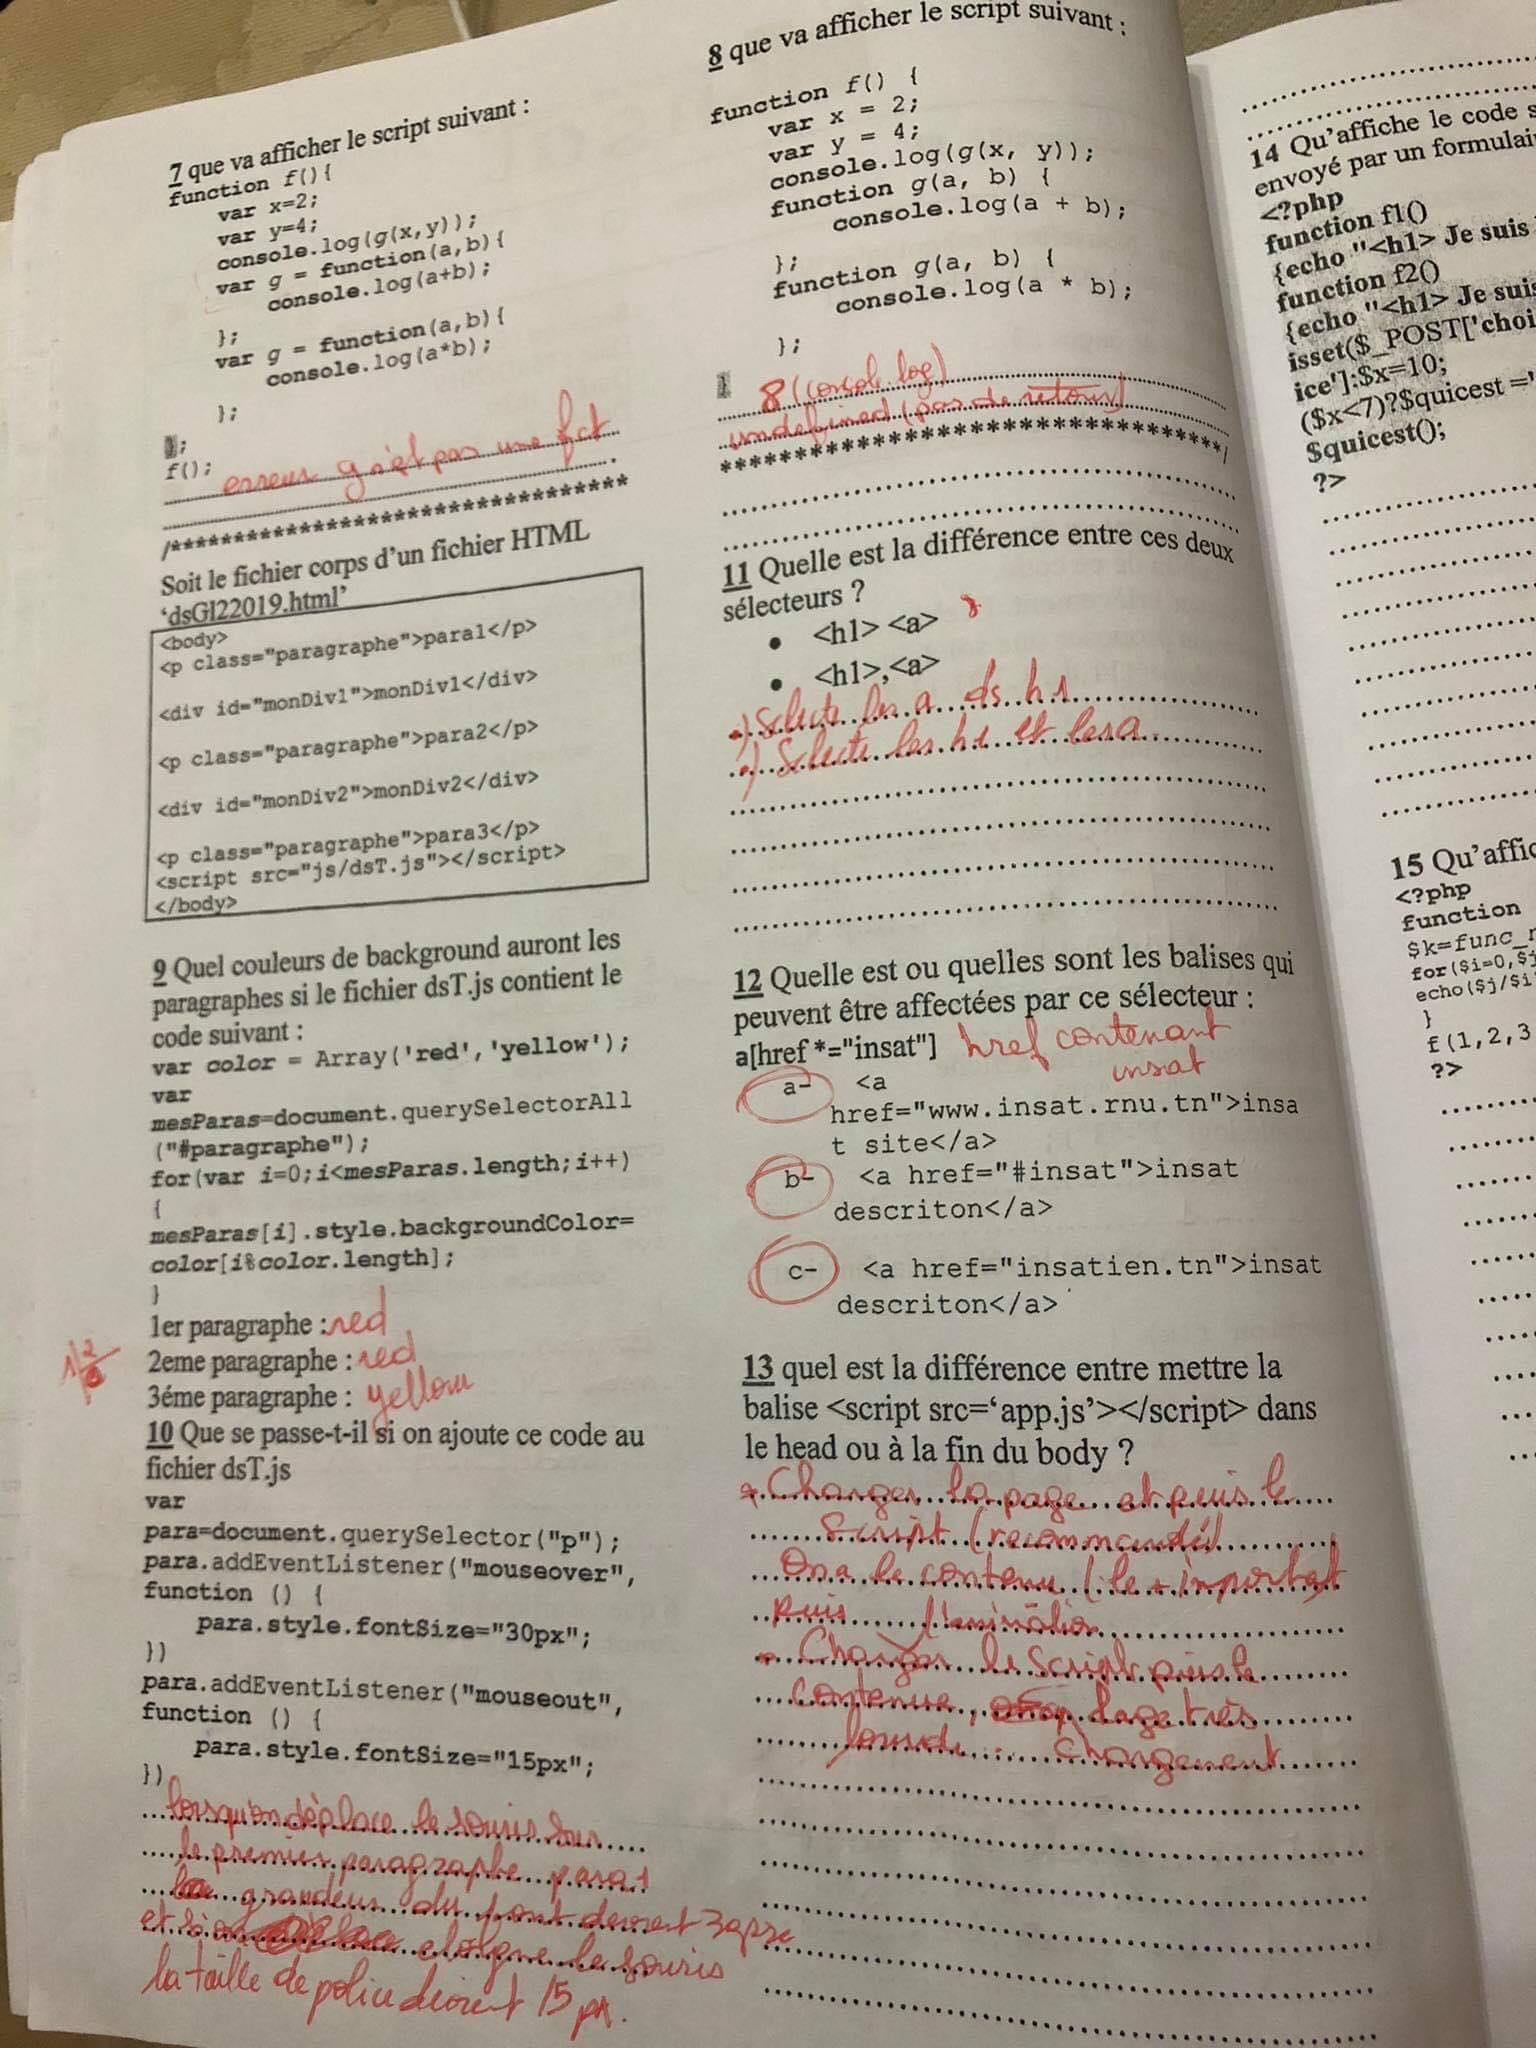 7 que va afficher le script suivant :
function f(){
var x=2;
var y=4;
console.log(g(x,y));
var g = function(a,b){
console.log(a+b);
};
var g = function(a,b){
console.log(a*b);
};
};
f();
erreur g n'est pas une fct
/*************************************
Soit le fichier corps d'un fichier HTML
'dsGl22019.html'
<body>
<p class="paragraphe">para1</p>
<div id="monDiv1">monDiv1</div>
<p class="paragraphe">para2</p>
<div id="monDiv2">monDiv2</div>
<p class="paragraphe">para3</p>
<script src="js/dsT.js"></script>
</body>
9 Quel couleurs de background auront les
paragraphes si le fichier dsT.js contient le
code suivant :
var color = Array('red','yellow');
var
mesParas=document.querySelectorAll
("#paragraphe");
for(var i=0;i<mesParas.length;i++)
{
mesParas[i].style.backgroundColor=
color[i%color.length];
}
1er paragraphe : red
2eme paragraphe : red
3éme paragraphe : yellow
10 Que se passe-t-il si on ajoute ce code au
fichier dsT.js
var
para=document.querySelector("p");
para.addEventListener("mouseover",
function () {
para.style.fontSize="30px";
})
para.addEventListener("mouseout",
function () {
para.style.fontSize="15px";
})
lorsqu'on déplace le souris sur
le premier paragraphe para1
grandeur du font devient 30px
et si on eloigne le souris
la taille de police devient 15 px.
8 que va afficher le script suivant :
function f() {
var x = 2;
var y = 4;
console.log(g(x, y));
function g(a, b) {
console.log(a + b);
};
function g(a, b) {
console.log(a * b);
};
}
8 (console.log)
undefined (pas de retour)
*************************************/
11 Quelle est la différence entre ces deux
sélecteurs ?
• <h1> <a>
• <h1>,<a>
•) Selecte les a ds h1
•) Selecte les h1 et les a
12 Quelle est ou quelles sont les balises qui
peuvent être affectées par ce sélecteur :
a[href *="insat"] href contenant
insat
a- <a
href="www.insat.rnu.tn">insa
t site</a>
b- <a href="#insat">insat
descriton</a>
c- <a href="insatien.tn">insat
descriton</a>
13 quel est la différence entre mettre la
balise <script src='app.js'></script> dans
le head ou à la fin du body ?
* Charger la page et puis le
script (recommandé)
On a le contenu (le + important
puis l'animation
Charger le script puis le
contenue, page très
lourde chargement
14 Qu'affiche le code s
envoyé par un formulai
<?php
function f1()
{echo "<h1> Je suis
function f2()
{echo "<h1> Je suis
isset($_POST['choi
ice']:$x=10;
($x<7)?$quicest ='
$quicest();
?>
15 Qu'affic
<?php
function
$k=func_n
for($i=0,$j
echo($j/$i
}
f(1,2,3
?>